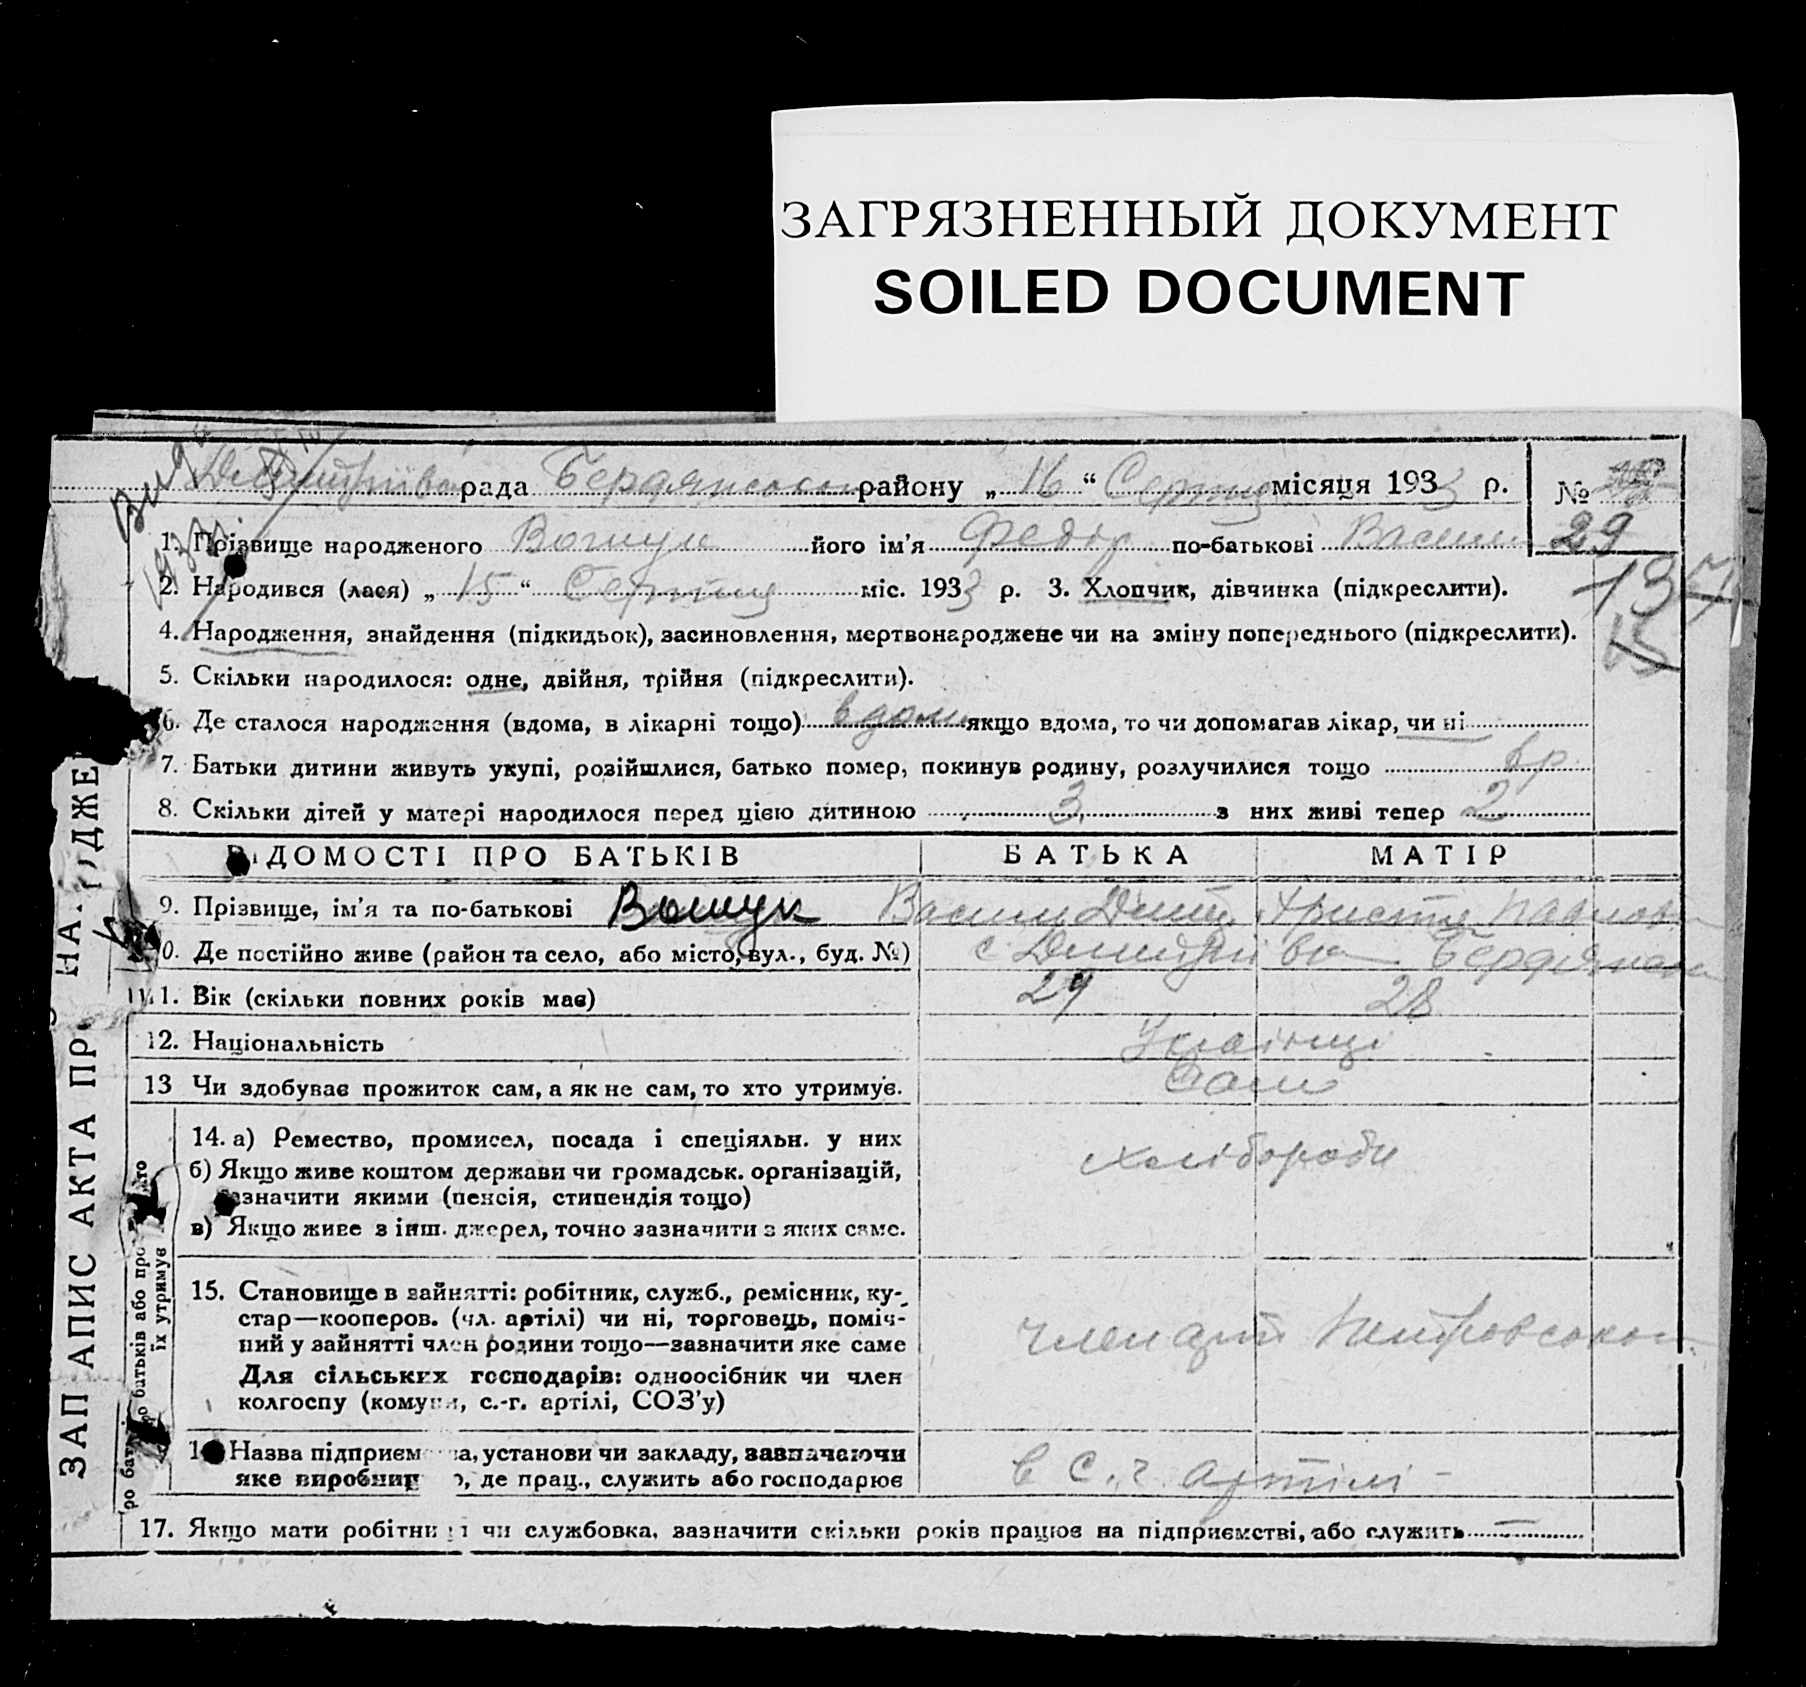 ЗАГРЯЗНЕННЫЙ ДОКУМЕНТ
SOILED DOCUMENT
Дмитріївс рада Бердянського району „ 16 “ Серпня місяця 1933 р. №
29
1. Прізвище народженого Вошук його ім'я Федір по-батькові Васил
2. Народився (лася) „ 15 “ Серпня міс. 1933 р. 3. Хлопчик, дівчинка (підкреслити).
137
4. Народження, знайдення (підкидьок), засиновлення, мертвонароджене чи на зміну попереднього (підкреслити).
5. Скільки народилося: одне, двійня, трійня (підкреслити).
6. Де сталося народження (вдома, в лікарні тощо) вдома якщо вдома, то чи допомагав лікар, чи ні
7. Батьки дитини живуть укупі, розійшлися, батько помер, покинув родину, розлучилися тощо
8. Скільки дітей у матері народилося перед цією дитиною 3 з них живі тепер 2
ВІДОМОСТІ ПРО БАТЬКІВ БАТЬКА МАТІР
9. Прізвище, ім'я та по-батькові Вошук Васил Дмит Христя Павлов
10. Де постійно живе (район та село, або місто, вул., буд. №) с Дмитрівка Бердянськ
11. Вік (скільки повних років має) 29 28
12. Національність Українці
13 Чи здобуває прожиток сам, а як не сам, то хто утримує. Сами
14. а) Ремество, промисел, посада і спеціяльн. у них хлібороби
б) Якщо живе коштом держави чи громадськ. організацій,
зазначити якими (пенсія, стипендія тощо)
в) Якщо живе з інш. джерел, точно зазначити з яких саме.
15. Становище в зайнятті: робітник, служб., ремісник, ку-
стар—кооперов. (чл. артілі) чи ні, торговець, поміч-
ний у зайнятті член родини тощо—зазначити яке саме член арт Петровського
Для сільських господарів: одноосібник чи член
колгоспу (комуни, с.-г. артілі, СОЗ'у)
16 Назва підприємства, установи чи закладу, зазначаючи
яке виробництво, де прац., служить або господарює в с.г. артілі -
17. Якщо мати робітниця чи службовка, зазначити скільки років працює на підприємстві, або служить —
ЗАПИС АКТА ПРО НАРОДЖЕ
батьків або про
їх утримує